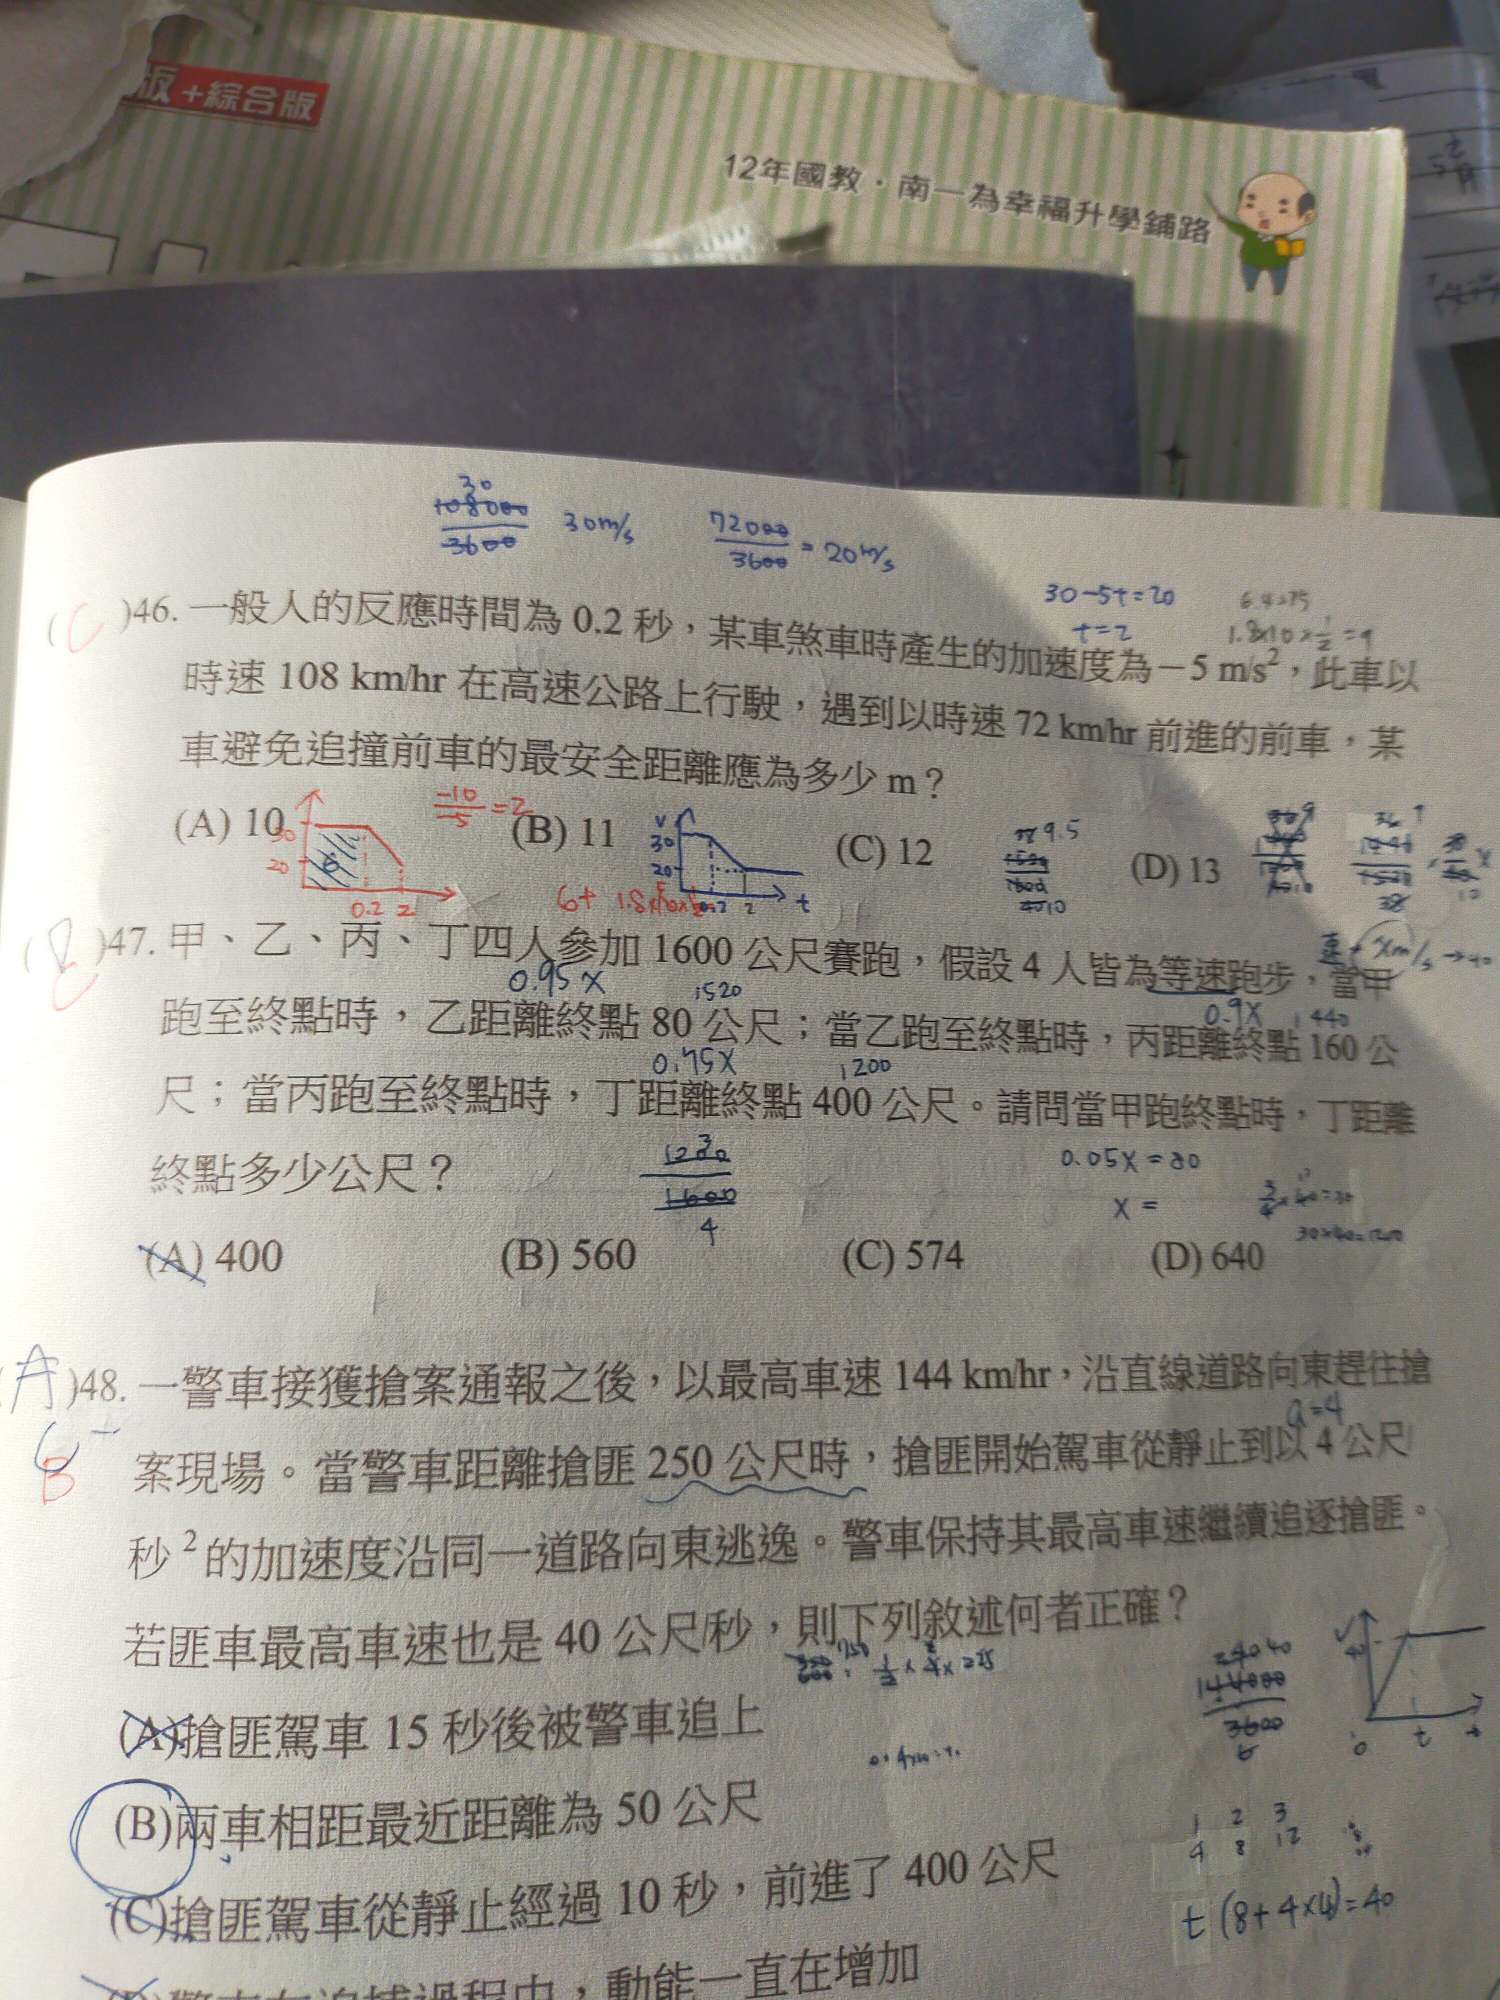 版+綜合版
12年國教·南一為幸福升學鋪路
30
108000
3600
30m/s
72000
3600
=20m/s
30-5t=20
t=2
(C)46. 一般人的反應時間為 0.2 秒，某車煞車時產生的加速度為－5 m/s²，此車以
時速 108 km/hr 在高速公路上行駛，遇到以時速 72 km/hr 前進的前車，某
車避免追撞前車的最安全距離應為多少 m？
(A) 10 (B) 11 (C) 12 (D) 13
-10
-5
=2
30
20
0.2 2
V
30
20
2 t
9.5
)47. 甲、乙、丙、丁四人參加 1600 公尺賽跑，假設 4 人皆為等速跑步，當甲
0.95X 1520 0.9X 1440
跑至終點時，乙距離終點 80 公尺；當乙跑至終點時，丙距離終點 160 公
0.75X 1200
尺；當丙跑至終點時，丁距離終點 400 公尺。請問當甲跑終點時，丁距離
終點多少公尺？
3
1200
1600
4
0.05X=80
X=
30×40=1200
(A) 400 (B) 560 (C) 574 (D) 640
(A)48. 一警車接獲搶案通報之後，以最高車速 144 km/hr，沿直線道路向東趕往搶
a=4
B
案現場。當警車距離搶匪 250 公尺時，搶匪開始駕車從靜止到以 4 公尺/
秒²的加速度沿同一道路向東逃逸。警車保持其最高車速繼續追逐搶匪。
若匪車最高車速也是 40 公尺/秒，則下列敘述何者正確？
(A)搶匪駕車 15 秒後被警車追上
(B)兩車相距最近距離為 50 公尺
(C)搶匪駕車從靜止經過 10 秒，前進了 400 公尺
警車在追捕過程中，動能一直在增加
40
144000
3600
V
40
0 t
1 2 3
4 8 12
t(8+4×4)=40